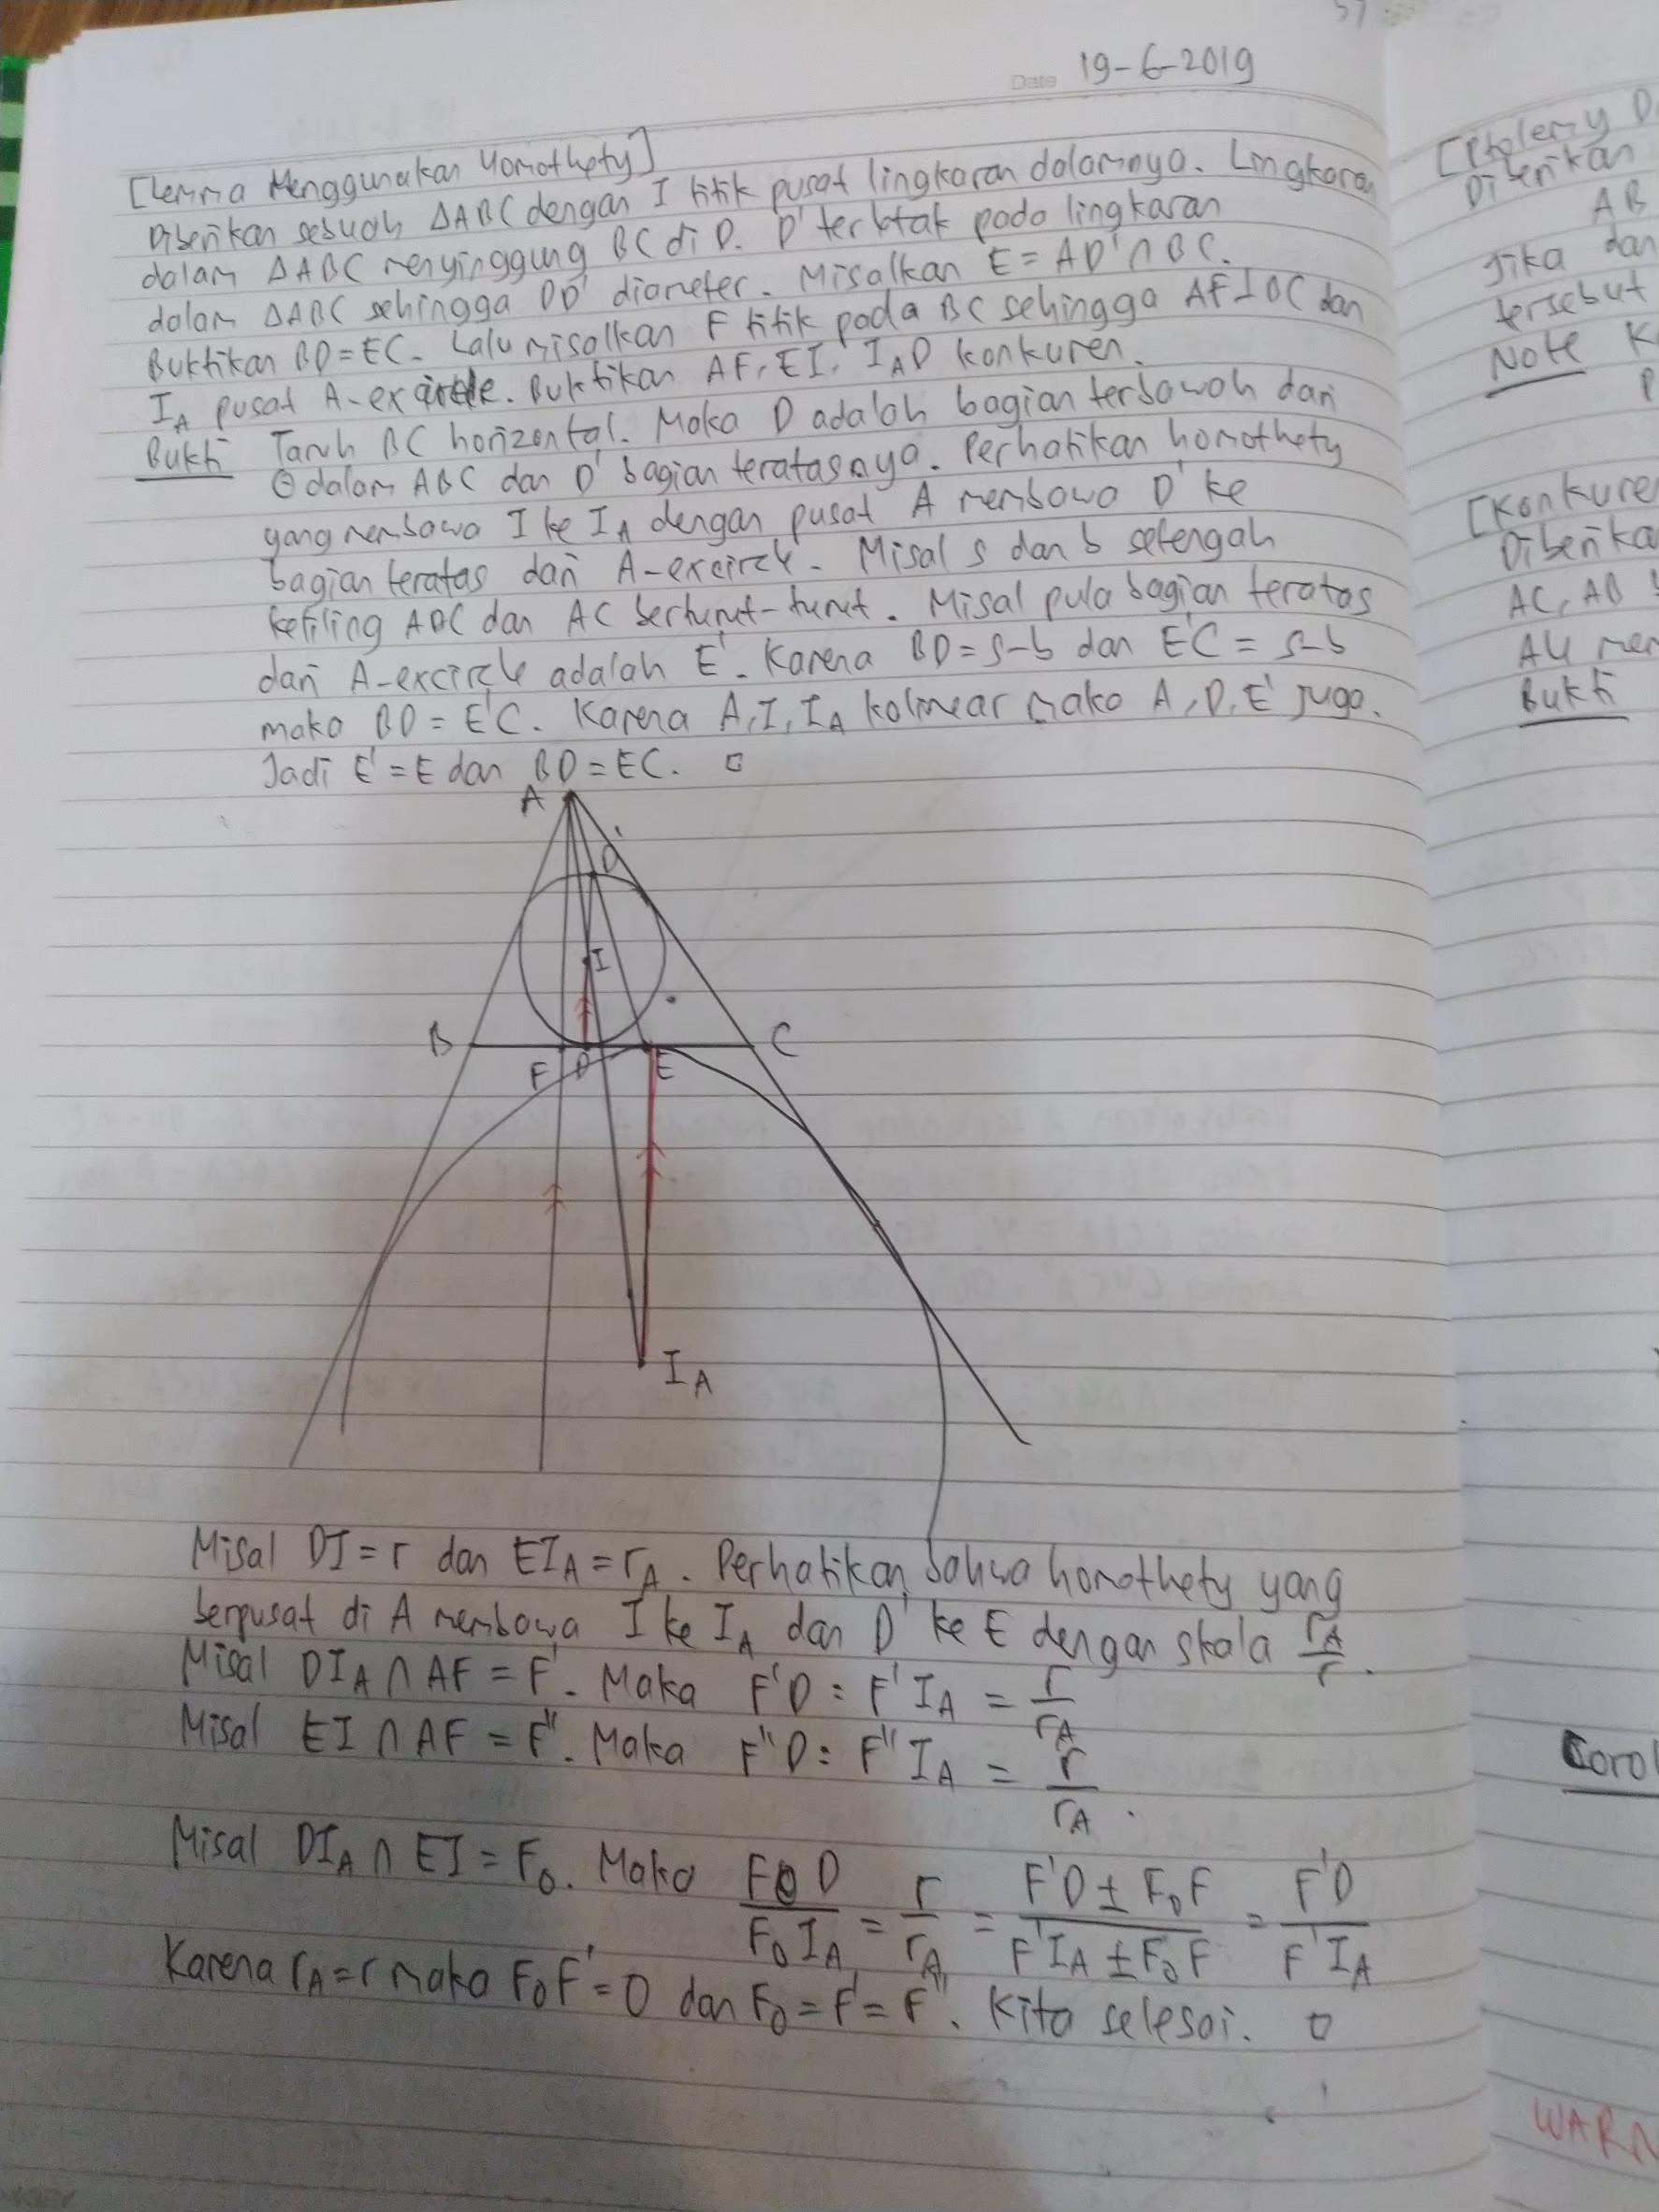 Date 19-6-2019
[Lemma Menggunakan Homothety]
Diberikan sebuah ΔABC dengan I titik pusat lingkaran dalamnya. Lingkaran
dalam ΔABC menyinggung BC di D. D' terletak pada lingkaran
dalam ΔABC sehingga DD' diameter. Misalkan E = AD' ∩ BC.
Buktikan BD = EC. Lalu misalkan F titik pada BC sehingga AF ⊥ BC dan
I_A pusat A-excircle. Buktikan AF, EI, I_A D konkuren.
Bukti Taruh BC horizontal. Maka D adalah bagian terbawah dari
⊙dalam ABC dan D' bagian teratasnya. Perhatikan homothety
yang membawa I ke I_A dengan pusat A membawa D' ke
bagian teratas dari A-excircle. Misal s dan b setengah
keliling ABC dan AC berturut-turut. Misal pula bagian teratas
dari A-excircle adalah E'. Karena BD = s-b dan E'C = s-b
maka BD = E'C. Karena A, I, I_A kolinear maka A, D, E' juga.
Jadi E' = E dan BD = EC. □
A
D'
I
B C
F D E
I_A
Misal DI = r dan EI_A = r_A. Perhatikan bahwa homothety yang
berpusat di A membawa I ke I_A dan D' ke E dengan skala r_A/r.
Misal DI_A ∩ AF = F'. Maka F'D : F'I_A = r/r_A
Misal EI ∩ AF = F". Maka F"D : F"I_A = r/r_A.
Misal DI_A ∩ EI = F_0. Maka F_0 D/F_0 I_A = r/r_A = F'D ± F_0 F/F'I_A ± F_0 F = F'D/F'I_A
Karena r_A = r maka F_0 F' = 0 dan F_0 = F' = F". Kita selesai. □
[Ptolemy
Diberikan
AB
Jika dan
tersebut
Note
[Konkure
Diberika
AC, AB
Bukti
Corol
WARN